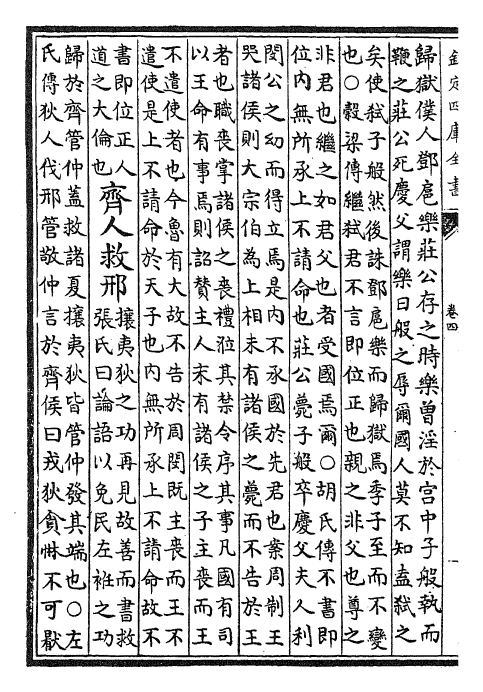 欽定四庫全書
卷四
歸獄僕人鄧扈樂莊公存之時樂曾淫於宫中子般執而
鞭之莊公死慶父謂樂曰般之辱爾國人莫不知盍弑之
矣使弑子般然後誅鄧扈樂而歸獄焉季子至而不變
也○榖梁傳繼弑君不言即位正也親之非父也尊之
非君也繼之如君父也者受國焉爾○胡氏傳不書即
位内無所承上不請命也莊公薨子般卒慶父夫人利
閔公之幼而得立焉是内不承國於先君也案周制王
哭諸侯則大宗伯為上相未有諸侯之薨而不告於王
者也職喪掌諸侯之喪禮涖其禁令序其事凡國有司
以王命有事焉則詔贊主人未有諸侯之子主喪而王
不遣使者也今魯有大故不告於周閔既主喪而王不
遣使是上不請命於天子也内無所承上不請命故不
書即位正人
道之大倫也
齊人救邢
攘夷狄之功再見故善而書救
張氏曰論語以免民左袵之功
歸於齊管仲蓋救諸夏攘夷狄皆管仲發其端也○左
氏傳狄人伐邢管敬仲言於齊侯曰戎狄貪惏不可厭